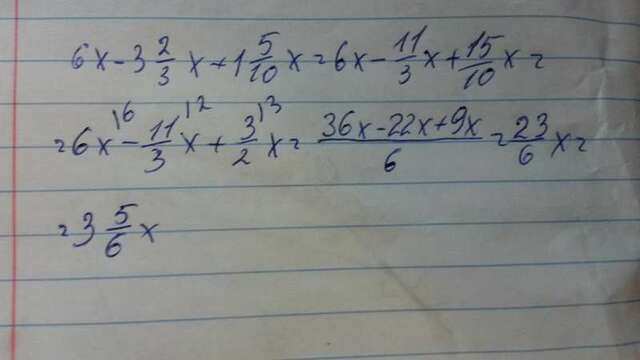 6x - 3 2/3 x + 1 5/10 x = 6x - 11/3 x + 15/10 x =
= 6x\6 - 11/3 x\2 + 3/2 x\3 = (36x - 22x + 9x)/6 = 23/6 x =
= 3 5/6 x